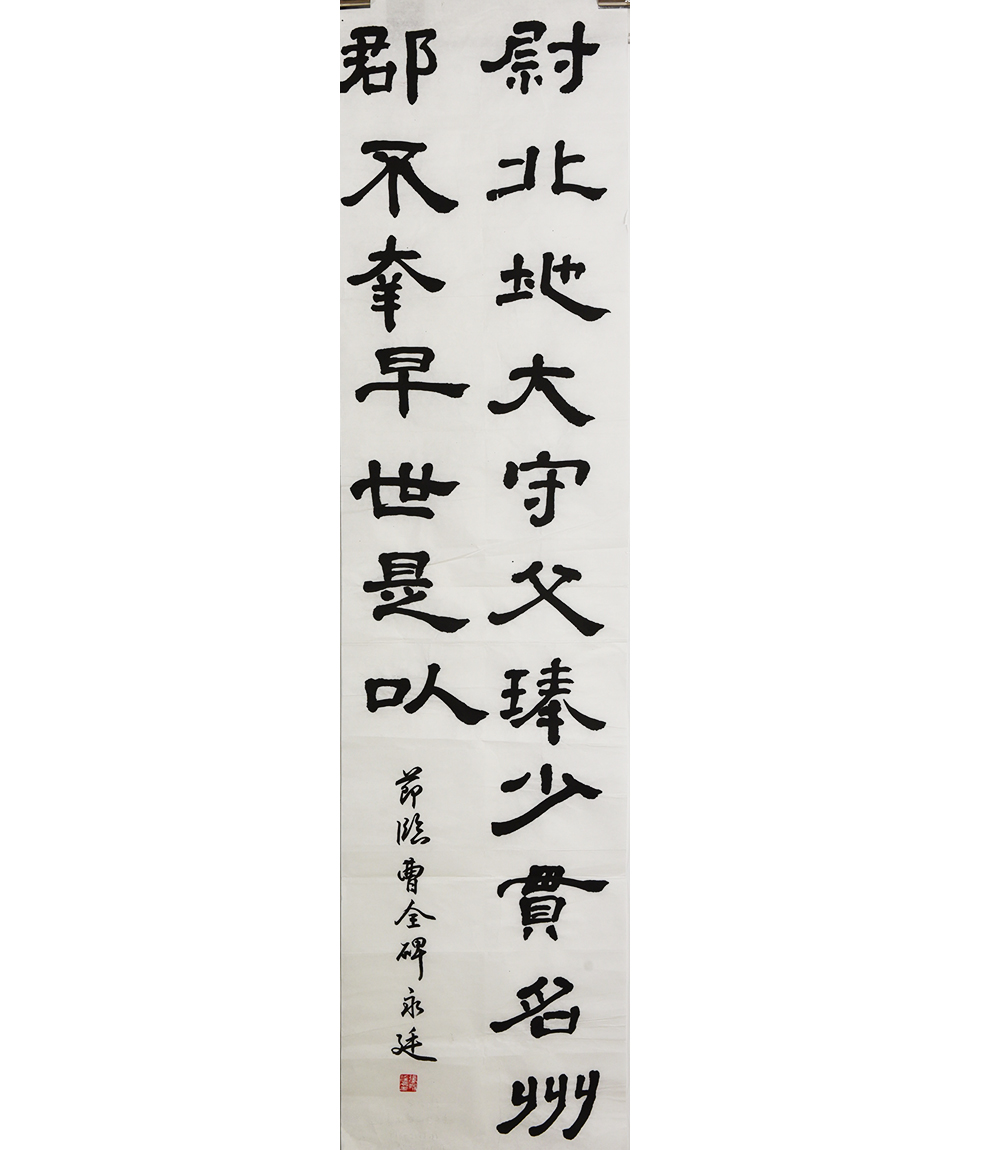 尉北地大守父琫少貫名州
郡不幸早世是以
節臨曹全碑永廷